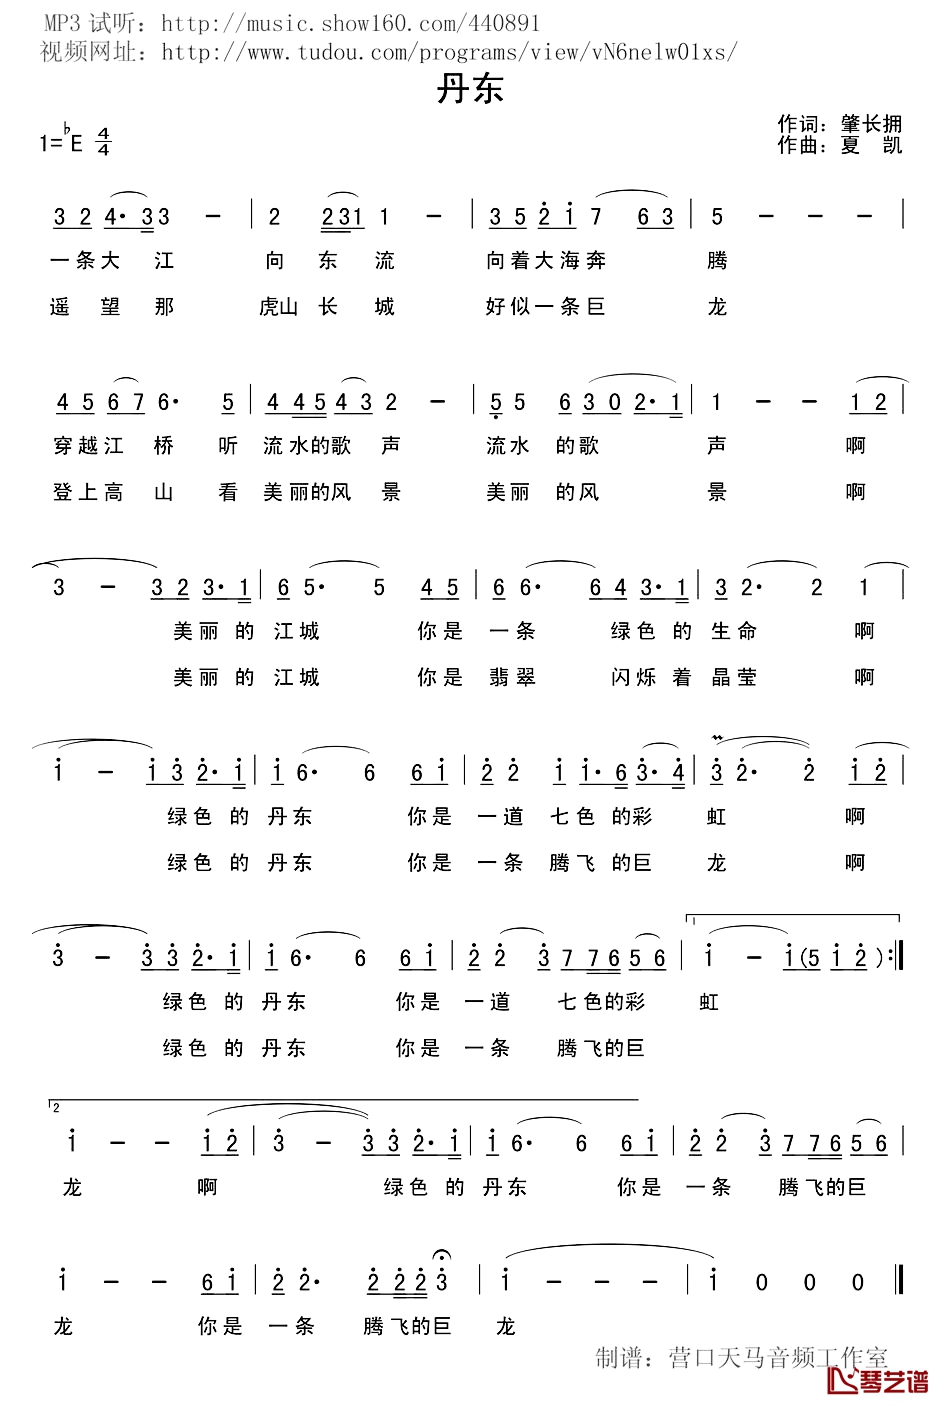 MP3试听：http://music.show160.com/440891
视频网址：http://www.tudou.com/programs/view/vN6nelw01xs/
丹东
作词：肇长拥
1=♭E 4/4
作曲：夏 凯
3 2 4· 3 3 － | 2 2 3 1 1 － | 3 5 2̇ 1̇ 7 6 3 | 5 － － － |
一条大 江 向 东 流 向着大海奔 腾
遥 望 那 虎山 长 城 好似一条巨 龙
4 5 6 7 6· 5 | 4 4 5 4 3 2 － | 5̣ 5 6 3 0 2· 1 | 1 － － 1 2 |
穿越江 桥 听 流水的歌 声 流水 的歌 声 啊
登上高 山 看 美丽的风 景 美丽 的风 景 啊
3 － 3 2 3· 1 | 6 5· 5 4 5 | 6 6· 6 4 3· 1 | 3 2· 2 1 |
美丽 的 江城 你是 一条 绿色 的 生命 啊
美丽 的 江城 你是 翡翠 闪烁 着 晶莹 啊
1̇ － 1̇ 3̇ 2̇· 1̇ | 1̇ 6· 6 6 1̇ | 2̇ 2̇ 1̇ 1̇· 6 3̇· 4̇ | 3̇ 2̇· 2̇ 1̇ 2̇ |
绿色 的 丹东 你是 一道 七色 的彩 虹 啊
绿色 的 丹东 你是 一条 腾飞 的巨 龙 啊
1
3̇ － 3̇ 3̇ 2̇· 1̇ | 1̇ 6· 6 6 1̇ | 2̇ 2̇ 3̇ 7 7 6 5 6 | 1̇ － 1̇ (5 1̇ 2̇ ) :‖
绿色 的 丹东 你是 一道 七色的彩 虹
绿色 的 丹东 你是 一条 腾飞的巨
2
1̇ － － 1̇ 2̇ | 3̇ － 3̇ 3̇ 2̇· 1̇ | 1̇ 6· 6 6 1̇ | 2̇ 2̇ 3̇ 7 7 6 5 6 |
龙 啊 绿色 的 丹东 你是 一条 腾飞的巨
1̇ － － 6 1̇ | 2̇ 2̇· 2̇ 2̇ 2̇ 3̇ | 1̇ － － － | 1̇ 0 0 0 ‖
龙 你是 一条 腾飞的巨 龙
制谱：营口天马音频工作室
琴艺谱